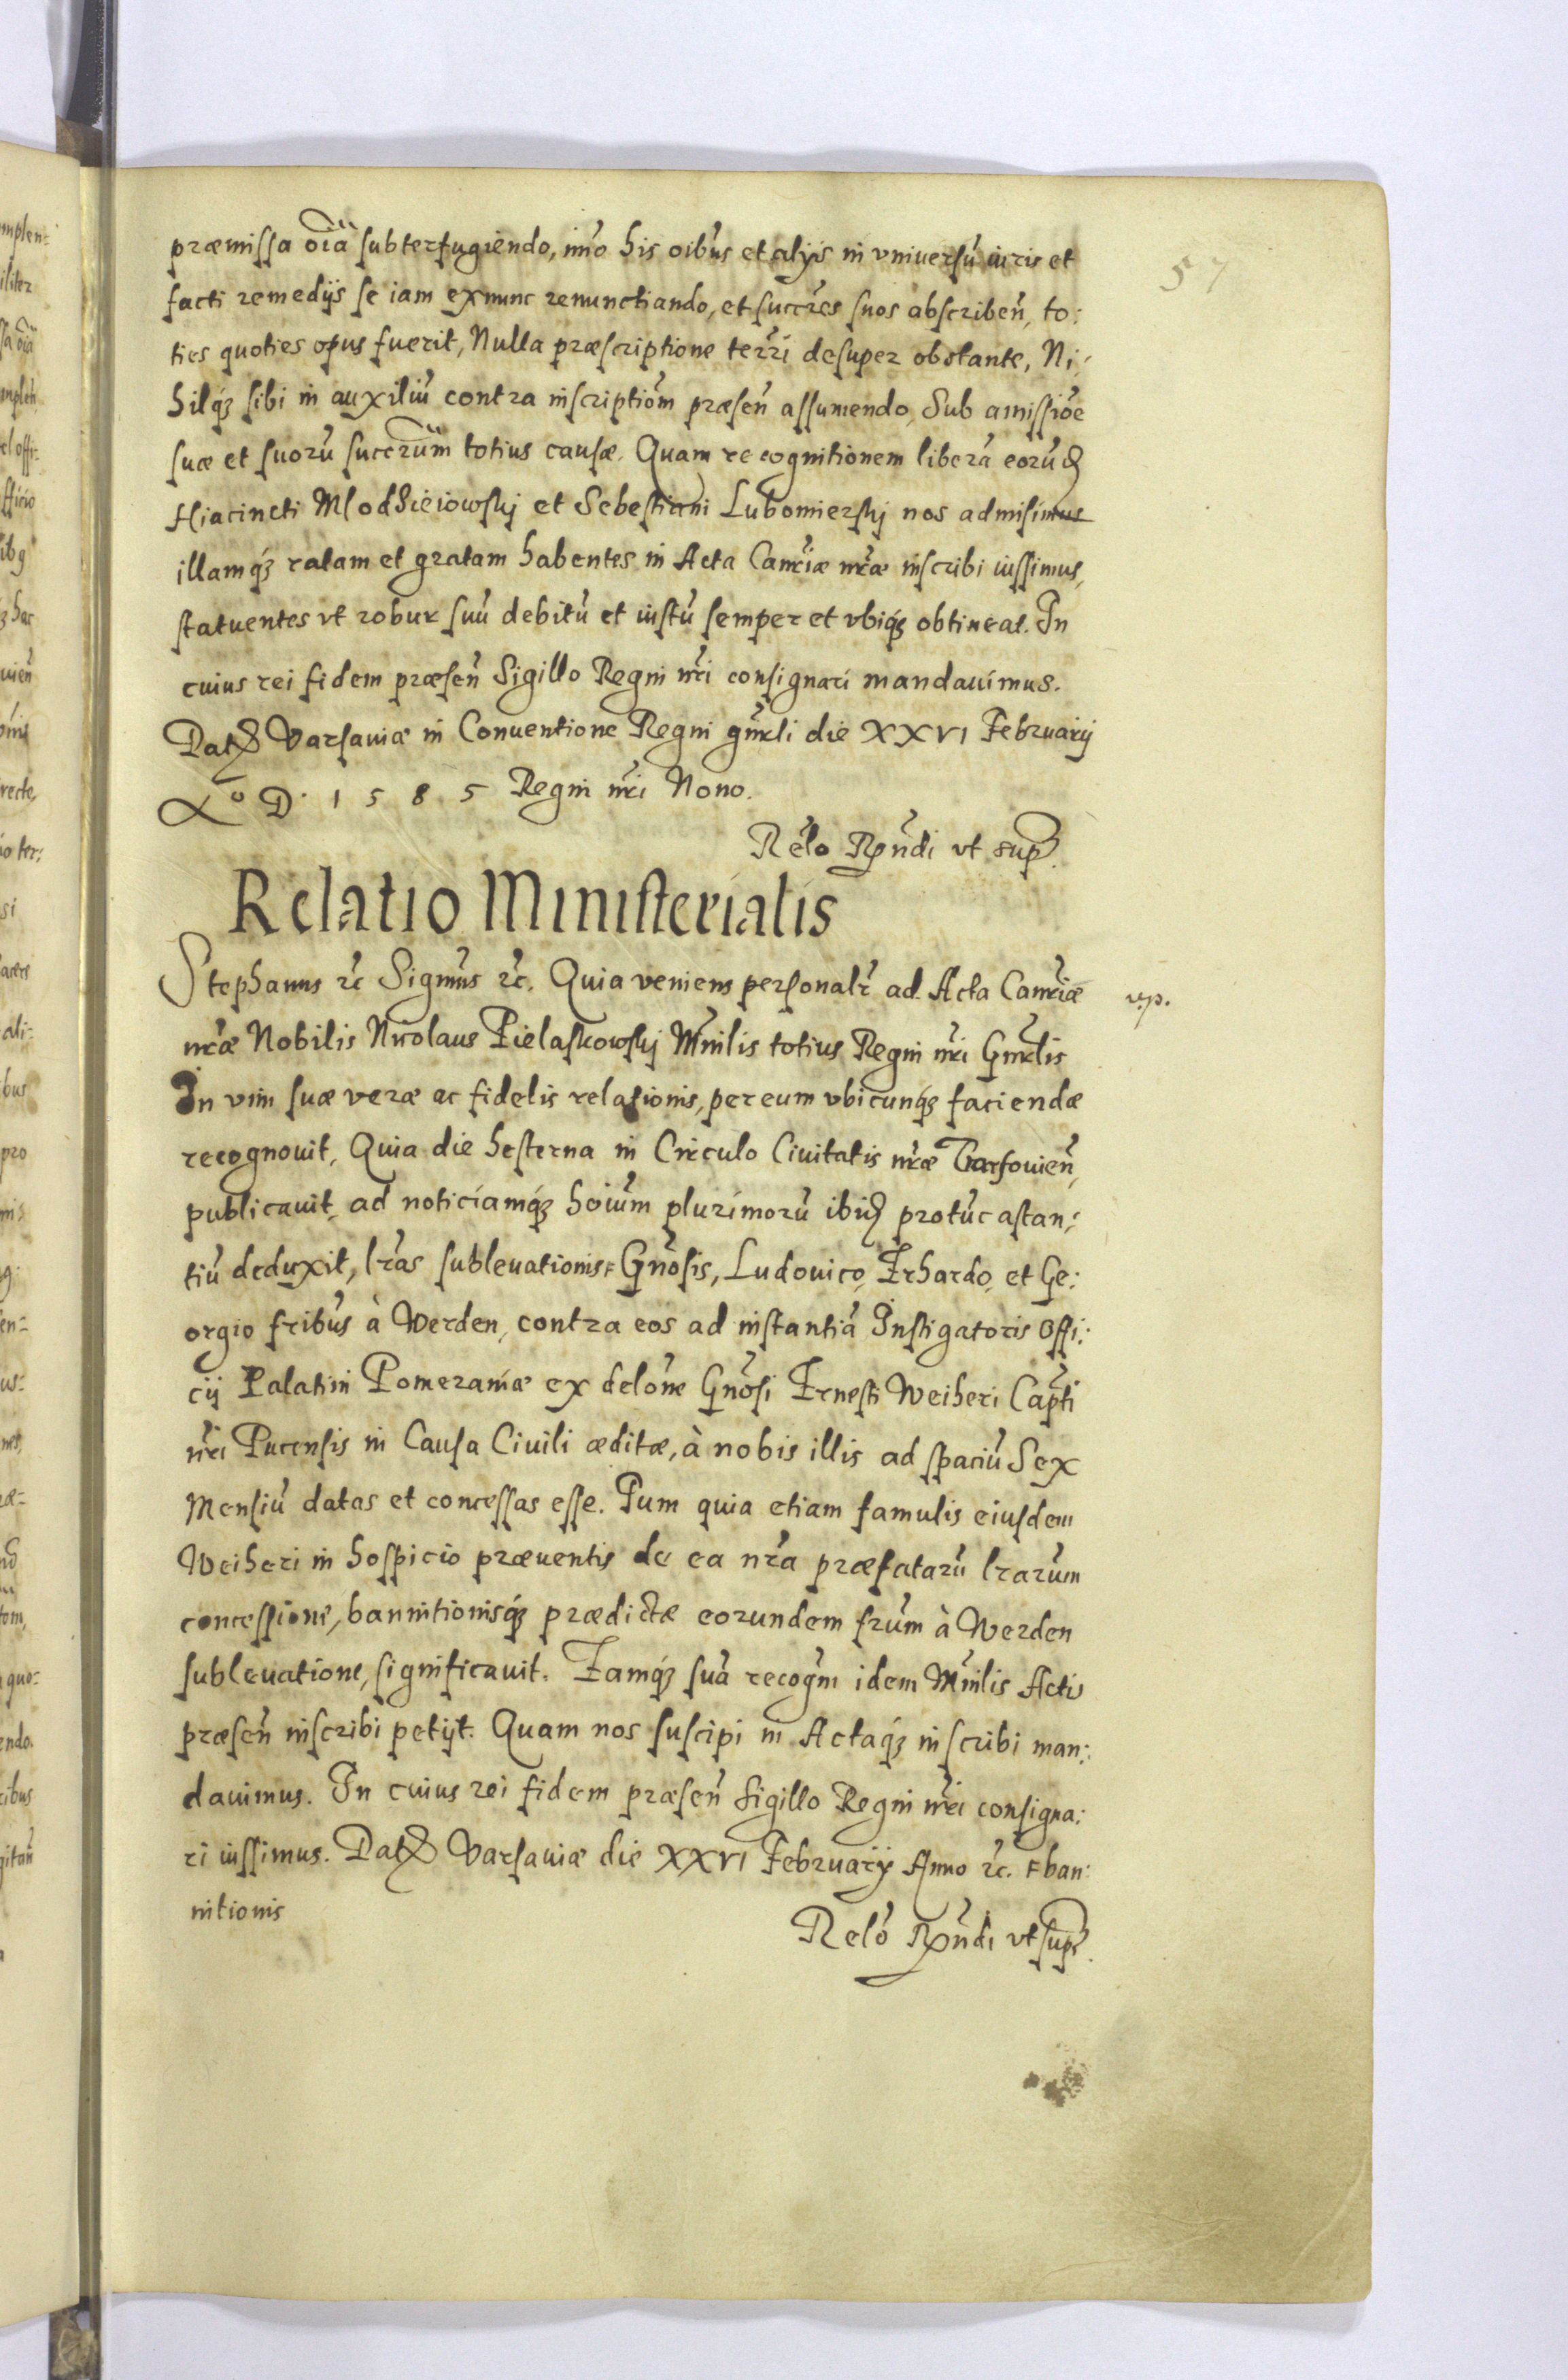 57
præmissa oi͠a subterfugiendo, imo his oibus et alyis in vniuersũ iuris et
facti remedijs se iam exnunc renunctiando, et succr̃es suos abscribeñ, to:
ties quoties opus fuerit, Nulla præscriptione terri desuper obstante, Ni:
hilqȝ sibi in auxiliũ contra inscriptiom̃ præseñ assumendo, Sub amissiõe
suæ et suorũ succr̃um totius causæ. Quam recognitionem liberã eorũd
Hiacincti Mlodzieiowskj et Sebestiani Lubomierskj nos admisimus
illamqȝ ratam et gratam habentes in Acta Canc̃riæ nr̃æ inscribi iussimus,
statuentes vt robur suũ debitũ et iustũ semper et vbiqȝ obtineat. In
cuius rei fidem præseñ Sigillo Regni nr̃i consignari mandauimus.
Dat Varsauiæ in Conuentione Regni gñrli die XXVI February
Ao D. 1585 Regni nr̃i Nono.
Rel̃o Rp̃ndi vt sup
Relatio Ministerialis
Stephanus ꝛc̃ Sigmũs ꝛc̃. Quia veniens personalr̃ ad Acta Canc̃riæ
nr̃æ Nobilis Nicolaus Pielaskowskj Mñilis totius Regni nr̃i Gñrlis
In vim suæ veræ ac fidelis relationis, per eum vbicunqȝ faciendæ
recognouit, Quia die hesterna in Circulo Ciuitatis nr̃æ Varsouieñ,
publicauit, ad noticiamqȝ hoĩum plurimorũ ibid protũc astan:
tiũ deduxit, lr̃as subleuationis ⸗ Gñosis, Ludouico, Erhardo, et Ge:
orgio fribũs à Werden, contra eos ad instantiã Instigatoris Offi:
cij Palatini Pomeraniæ ex delõne Gñosi Ernesti Weiheri Cap̃ti
nr̃i Pucensis in Causa Ciuili æditæ, à nobis illis ad spaciũ Sex
Mensiũ datas et concessas esse. Tum quia etiam famulis eiusdem
Weiheri in hospicio præuentis de ea nr̃a præfatarũ lr̃arum
concessione, bannitionisqȝ prædictæ eorundem fr̃um à Werden
subleuatione, significauit. Eamqȝ suã recogñi idem Mñilis Actis
præseñ inscribi petijt. Quam nos suscipi in Actaqȝ inscribi man:
dauimus. In cuius rei fidem præseñ Sigillo Regni nr̃i consigna:
ri iussimus. Dat Varsauiæ die XXVI February Anno ꝛc̃. ⸗ ban:
nitionis
Rel̃o Rp̃ndi vt supr